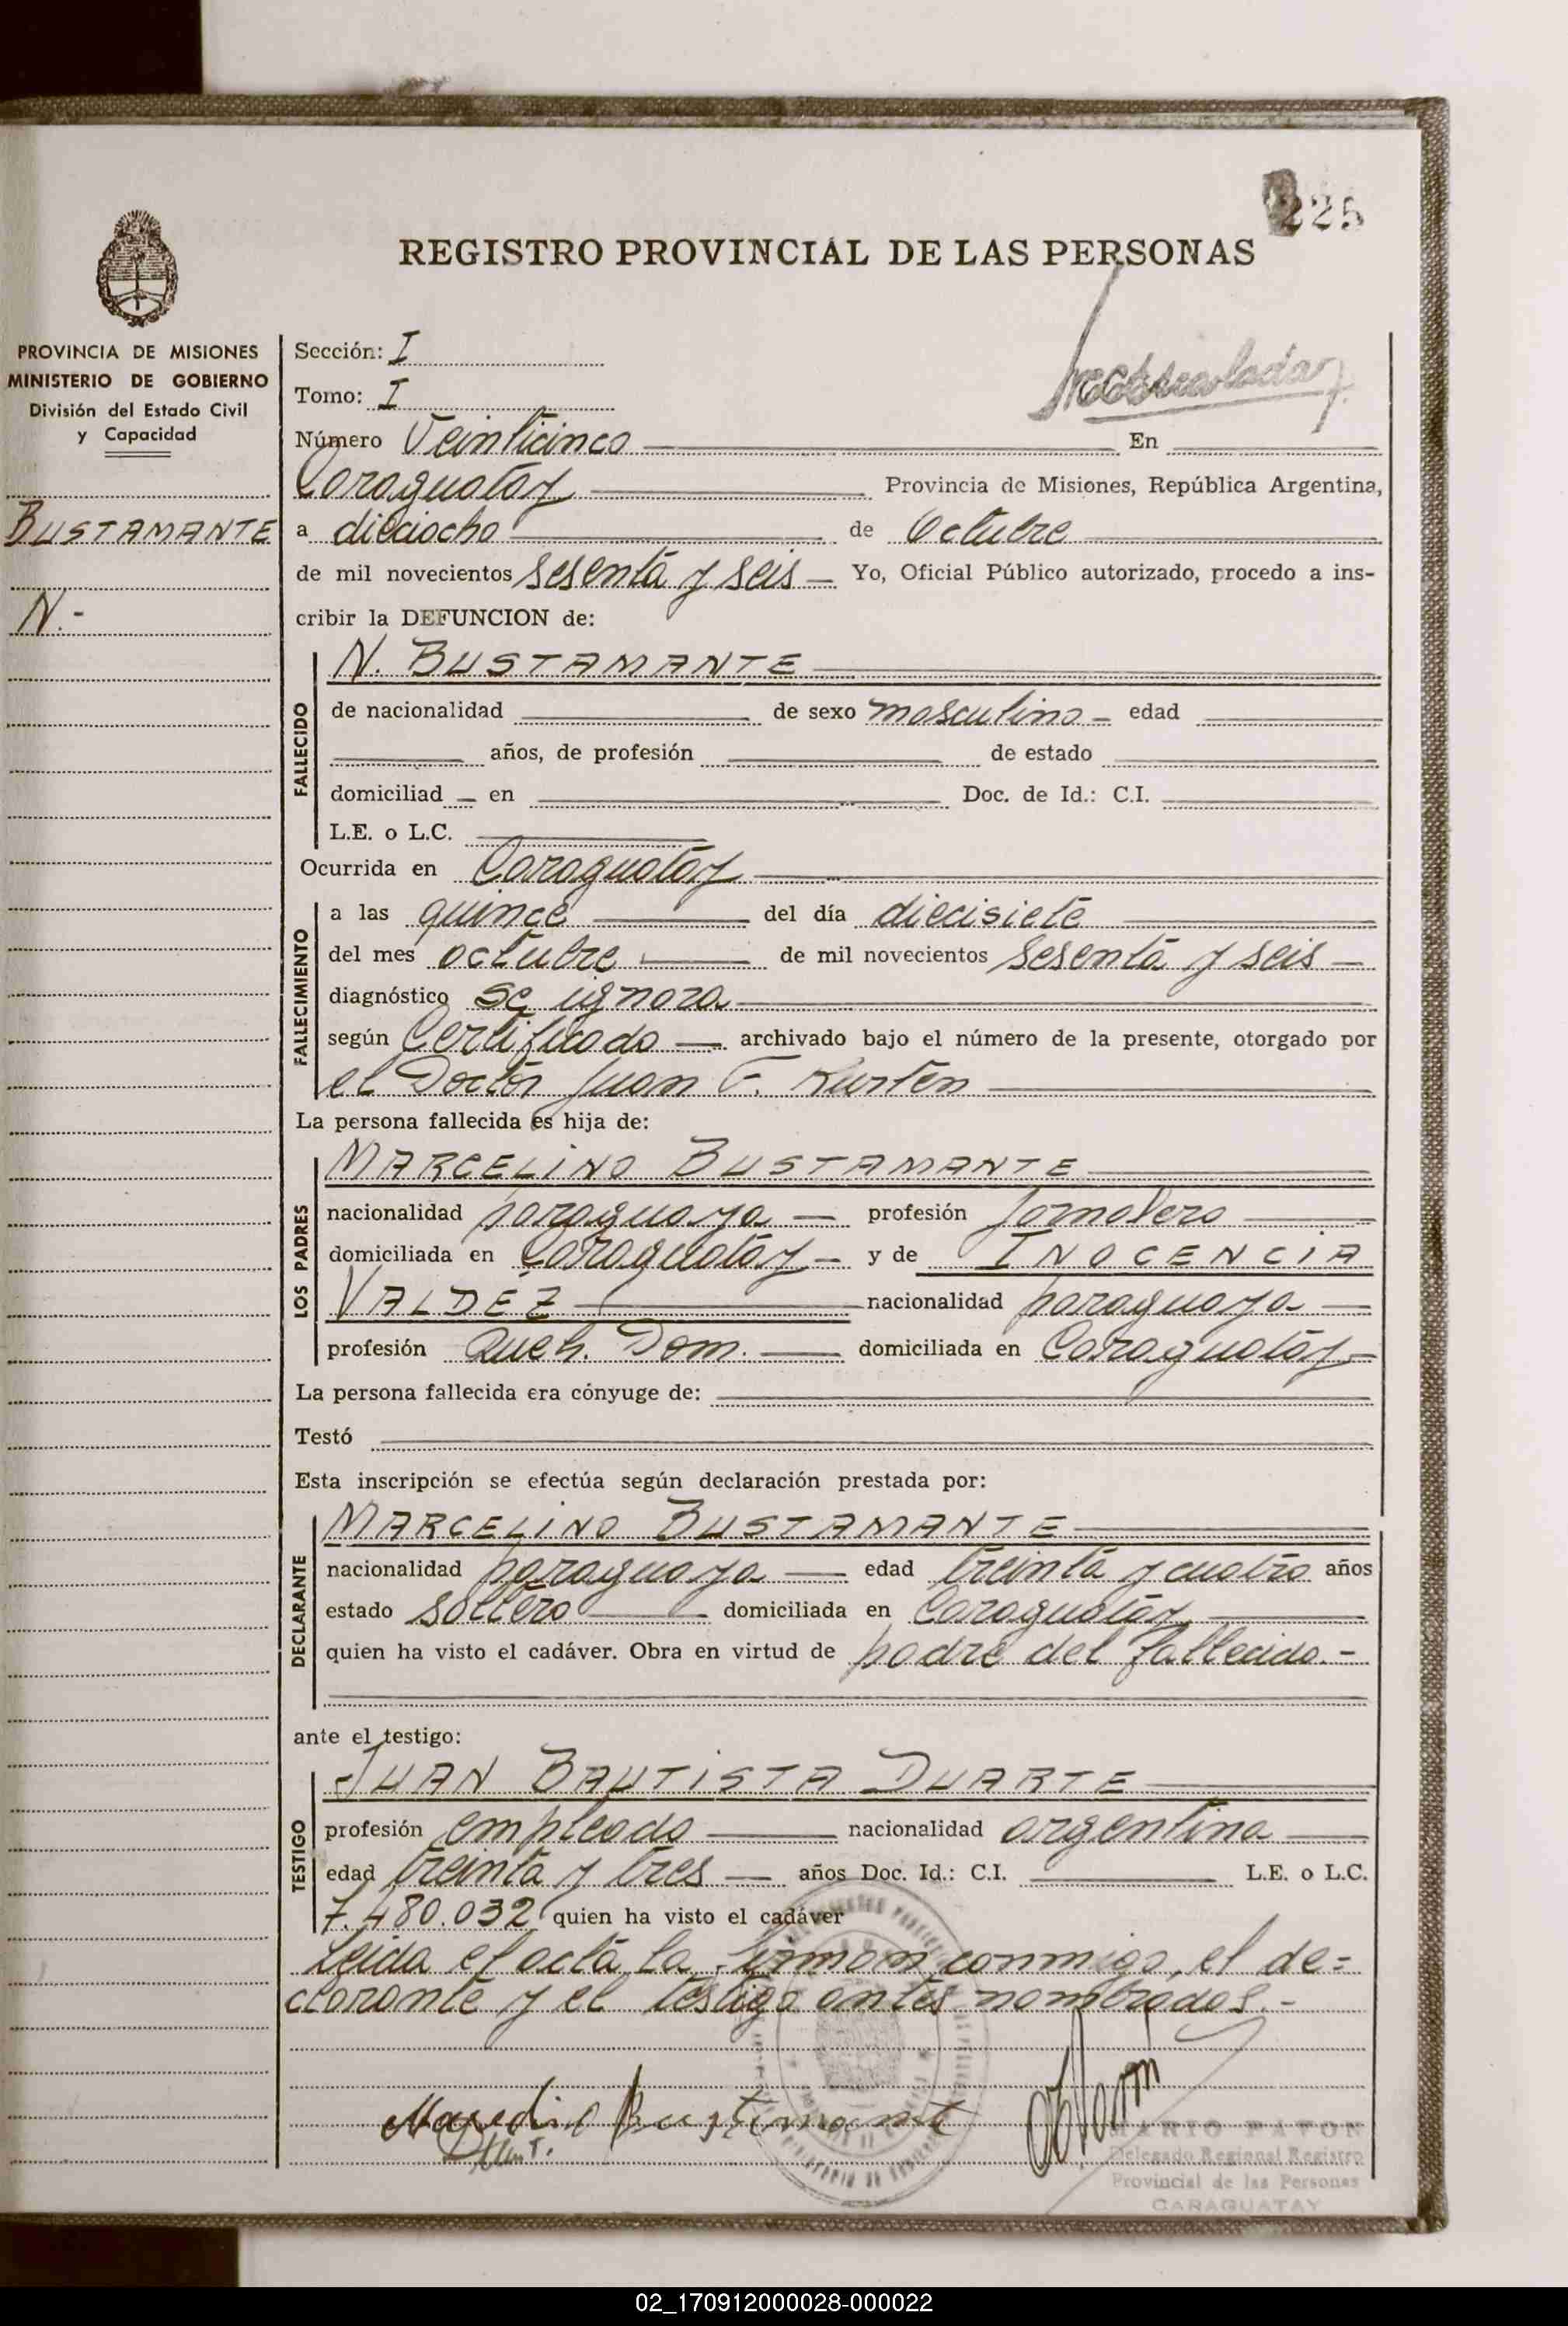 225
REGISTRO PROVINCIAL DE LAS PERSONAS
PROVINCIA DE MISIONES
MINISTERIO DE GOBIERNO
División del Estado Civil
y Capacidad
BUSTAMANTE
N.-
Sección: I
Tomo: I
Número Veinticinco En
Caraguatay Provincia de Misiones, República Argentina,
a dieciocho de Octubre
de mil novecientos sesenta y seis Yo, Oficial Público autorizado, procedo a ins-
cribir la DEFUNCION de:
FALLECIDO
N. BUSTAMANTE
de nacionalidad de sexo masculino edad
años, de profesión de estado
domiciliad en Doc. de Id.: C.I.
L.E. o L.C.
Ocurrida en Caraguatay
FALLECIMIENTO
a las quince del día diecisiete
del mes octubre de mil novecientos sesenta y seis
diagnóstico se ignora
según Certificado archivado bajo el número de la presente, otorgado por
el Doctor Juan F. Kurten
La persona fallecida es hija de:
LOS PADRES
MARCELINO BUSTAMANTE
nacionalidad paraguaya profesión Jornalero
domiciliada en Caraguatay y de INOCENCIA
VALDEZ nacionalidad paraguaya
profesión Queh. Dom. domiciliada en Caraguatay
La persona fallecida era cónyuge de:
Testó
Esta inscripción se efectúa según declaración prestada por:
DECLARANTE
MARCELINO BUSTAMANTE
nacionalidad paraguaya edad treinta y cuatro años
estado soltero domiciliada en Caraguatay
quien ha visto el cadáver. Obra en virtud de padre del fallecido.-
ante el testigo:
TESTIGO
JUAN BAUTISTA DUARTE
profesión empleado nacionalidad argentina
edad treinta y tres años Doc. Id.: C.I. L.E. o L.C.
7.480.032 quien ha visto el cadáver
Leída el acta la firman conmigo, el de=
clarante y el testigo antes nombrados.-
MARIO PAYON
Delegado Regional Registro
Provincial de las Personas
CARAGUATAY
02_170912000028-000022